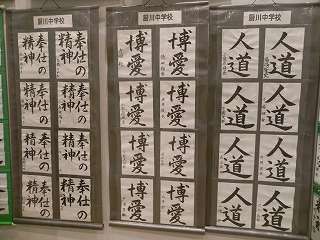 厨川中学校
奉仕の
精神
奉仕の
精神
奉仕の
精神
奉仕の
精神
奉仕の
精神
奉仕の
精神
奉仕の
精神
奉仕の
精神
厨川中学校
博愛
博愛
博愛
博愛
博愛
博愛
博愛
博愛
厨川中学校
人道
人道
人道
人道
人道
人道
人道
人道